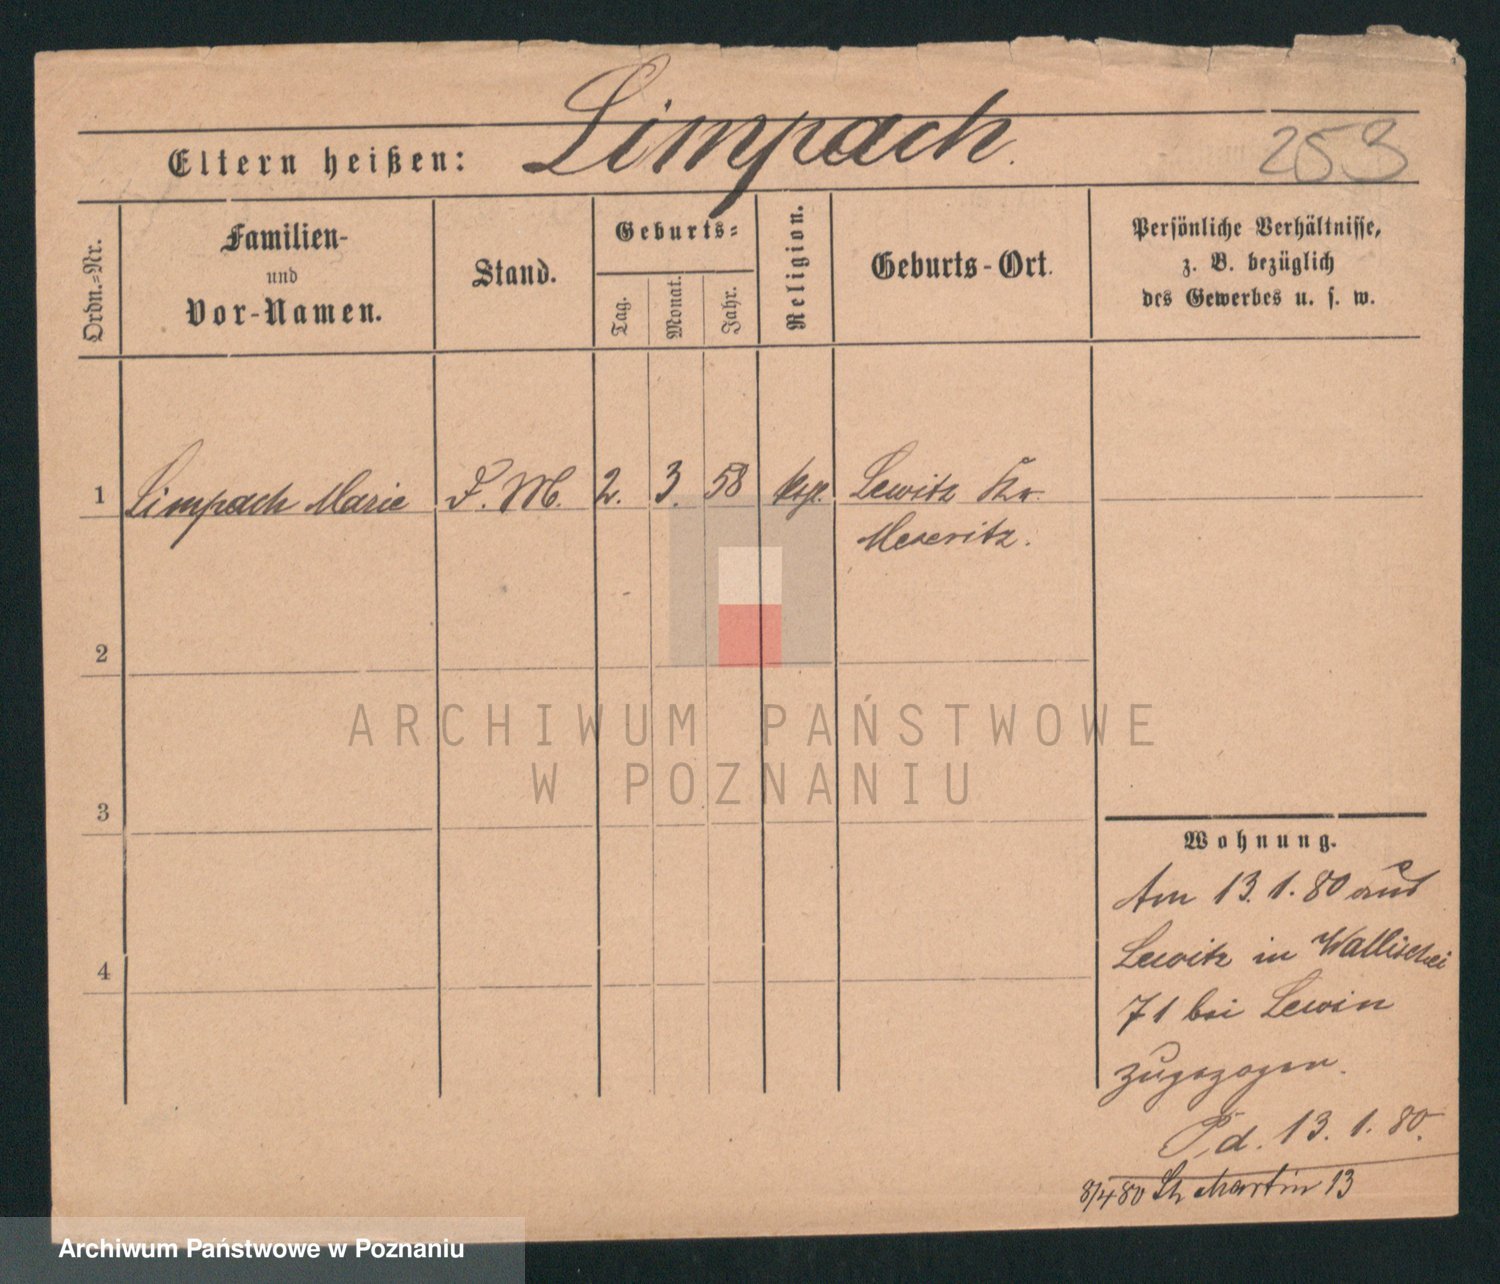 Limpach.
Eltern heißen:
253
Ordn.=Nr.
Familien-
und
Vor-Namen.
Stand.
Geburts=
Tag.
Monat.
Jahr.
Religion.
Geburts-Ort.
Persönliche Verhältnisse,
z. B. bezüglich
des Gewerbes u. s. w.
1 Limpach Marie D. M. 2. 3. 58 Lewitz Kr.
Meseritz.
2
3
4
ARCHIWUM PAŃSTWOWE
W POZNANIU
Wohnung.
Am 13. 1. 80 aus
Lewitz in Wallischei
71 bei Lewin
zugezogen.
P. d. 13. 1. 80.
8/4 80 St Martin 13
Archiwum Państwowe w Poznaniu